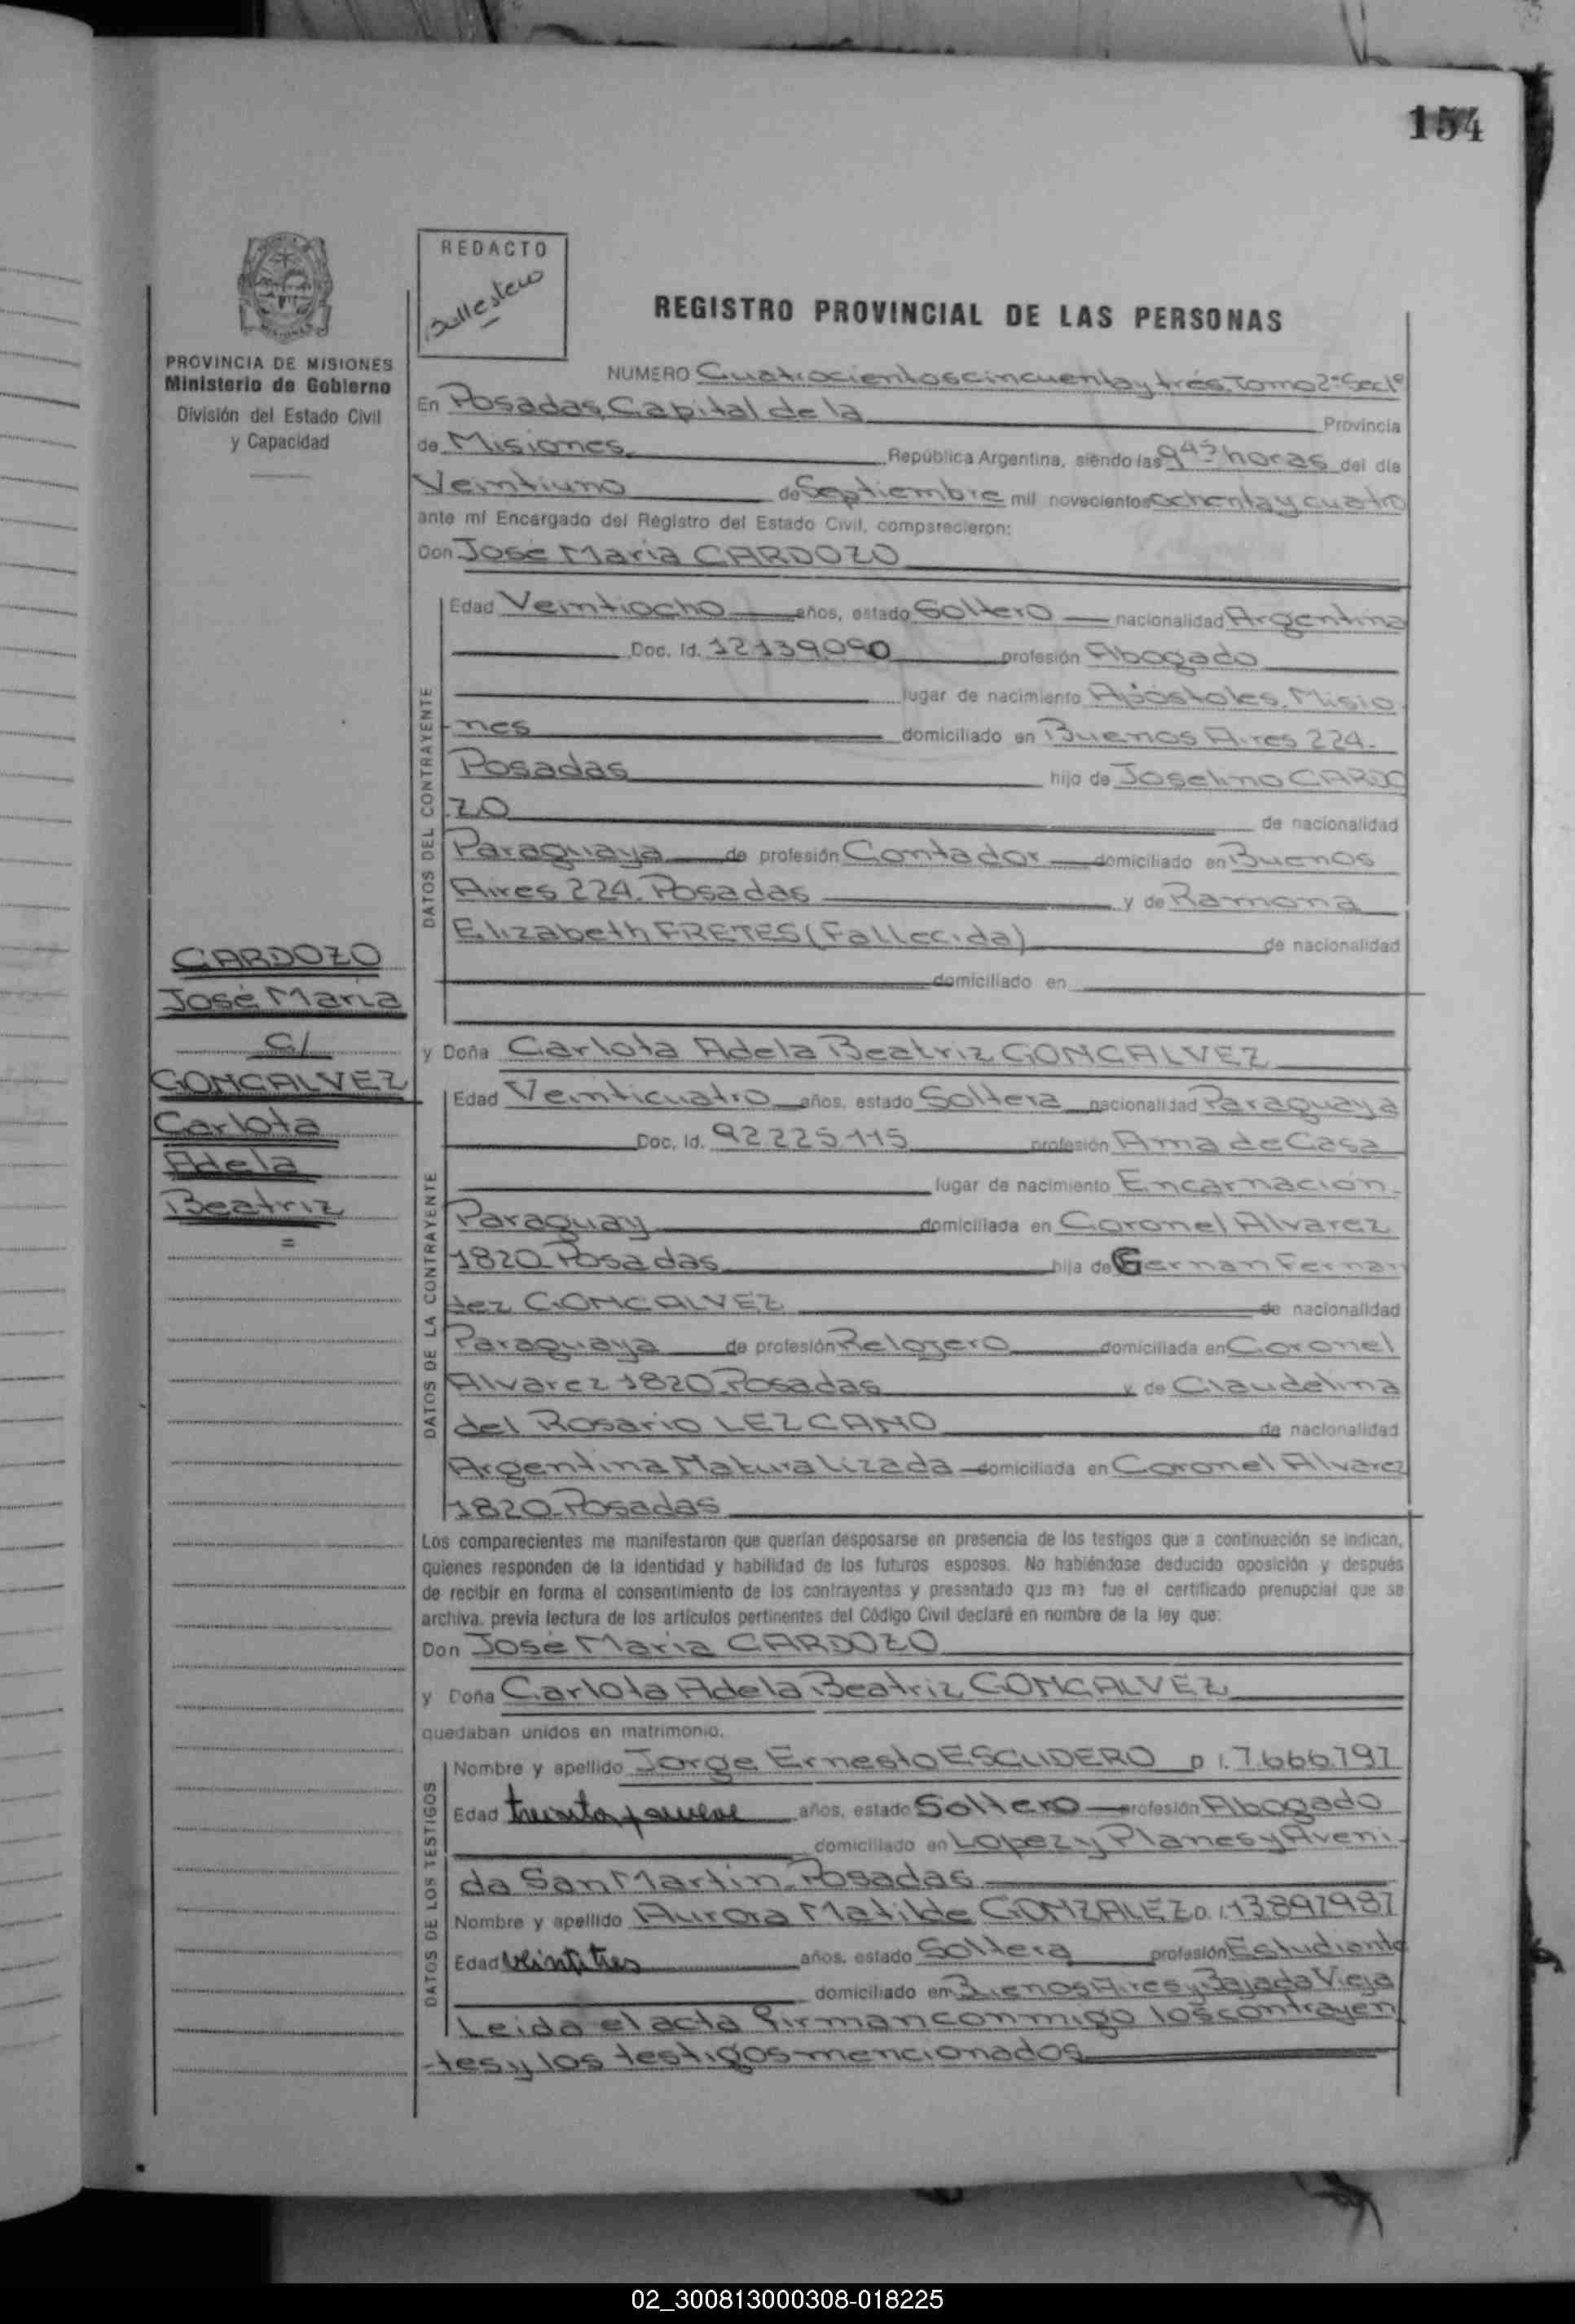 154
REDACTO
REGISTRO PROVINCIAL DE LAS PERSONAS
PROVINCIA DE MISIONES
Ministerio de Gobierno
División del Estado Civil
y Capacidad
NUMERO Cuatrocientos cincuenta y trés. Tomo 2º Sec 1º
En Posadas, Capital de la Provincia
de Misiones República Argentina, siendo las 9 45 horas del día
Veintiuno de Septiembre mil novecientos ochenta y cuatro
ante mí Encargado del Registro del Estado Civil, comparecieron:
Don José María CARDOZO
DATOS DEL CONTRAYENTE
Edad Veintiocho años, estado Soltero nacionalidad Argentina
Doc. Id. 12139090 profesión Abogado
lugar de nacimiento Apóstoles. Misio
nes domiciliado en Buenos Aires 224.
Posadas hijo de Joselino CARDO
ZO de nacionalidad
Paraguaya de profesión Contador domiciliado en Buenos
Aires 224. Posadas y de Ramona
Elizabeth FRETES (Fallecida) de nacionalidad
domiciliado en
CARDOZO
José María
C/
GONCALVEZ
Carlota
Adela
Beatriz
=
y Doña Carlota Adela Beatriz GONCALVEZ
DATOS DE LA CONTRAYENTE
Edad Veinticuatro años, estado Soltera nacionalidad Paraguaya
Doc. Id. 92225115 profesión Ama de Casa
lugar de nacimiento Encarnación.
Paraguay domiciliada en Coronel Alvarez
1820 Posadas hija de German Fernan
dez GONCALVEZ de nacionalidad
Paraguaya de profesión Relojero domiciliada en Coronel
Alvarez 1820. Posadas y de Claudelina
del Rosario LEZCANO de nacionalidad
Argentina Naturalizada domiciliada en Coronel Alvarez
1820 Posadas
Los comparecientes me manifestaron que querían desposarse en presencia de los testigos que a continuación se indican,
quienes responden de la identidad y habilidad de los futuros esposos. No habiéndose deducido oposición y después
de recibir en forma el consentimiento de los contrayentes y presentado que me fue el certificado prenupcial que se
archiva, previa lectura de los artículos pertinentes del Código Civil declaré en nombre de la ley que:
Don José María CARDOZO
y Doña Carlota Adela Beatriz GONCALVEZ
quedaban unidos en matrimonio.
DATOS DE LOS TESTIGOS
Nombre y apellido Jorge Ernesto ESCUDERO D I. 7.666.797
Edad treinta y nueve años, estado Soltero profesión Abogado
domiciliado en Lopez y Planes y Aveni
da San Martín. Posadas
Nombre y apellido Aurora Matilde GONZALEZ D. I. 13897987
Edad veintitres años, estado Soltera profesión Estudiante
domiciliado en Buenos Aires y Bajada Vieja
Leida el acta firman conmigo los contrayen
tes y los testigos mencionados
02_300813000308-018225